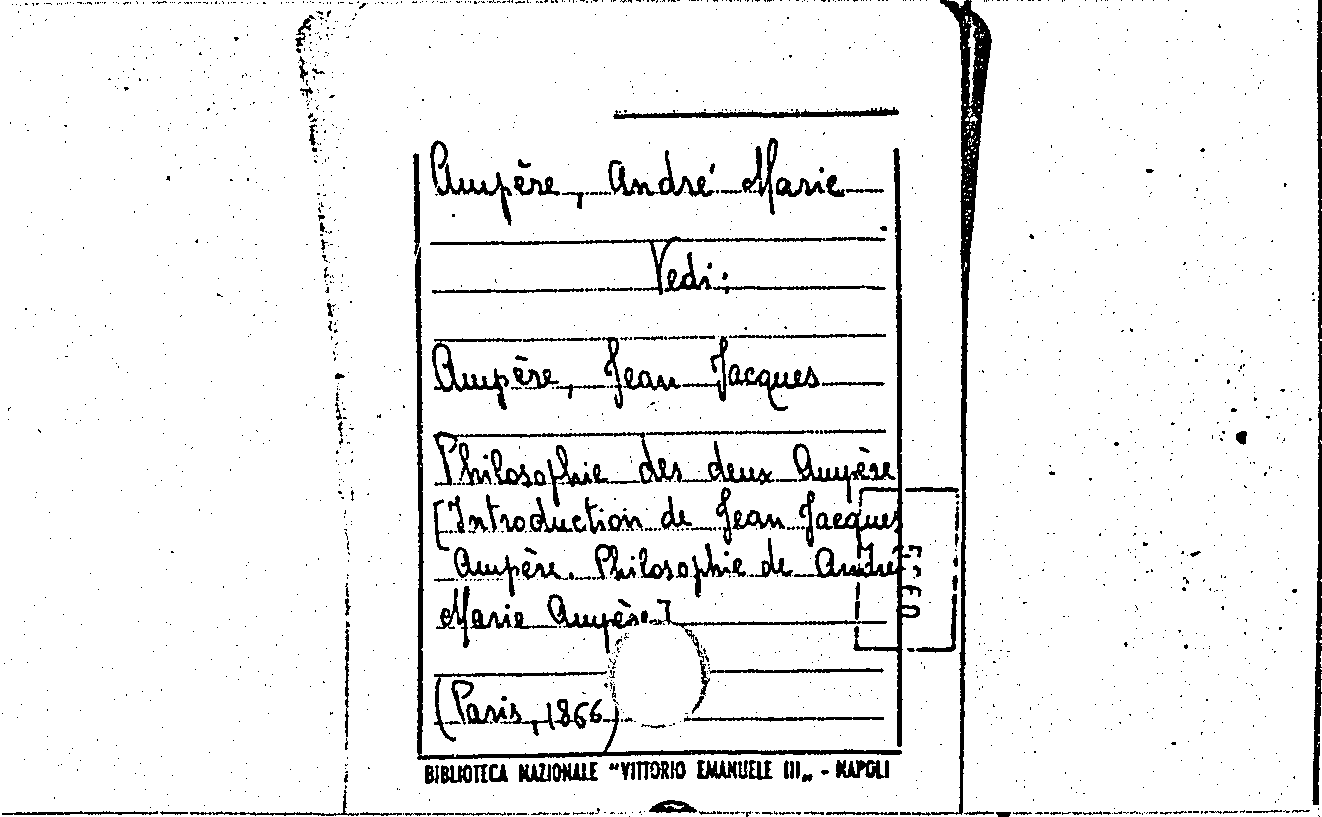 Ampère, André Marie
Vedi:
Ampère, Jean Jacques
Philosophie des deux Ampère
[Introduction de Jean Jacques
Ampère. Philosophie de André
Marie Ampère]
(Paris, 1866)
BIBLIOTECA NAZIONALE "VITTORIO EMANUELE III„ - NAPOLI